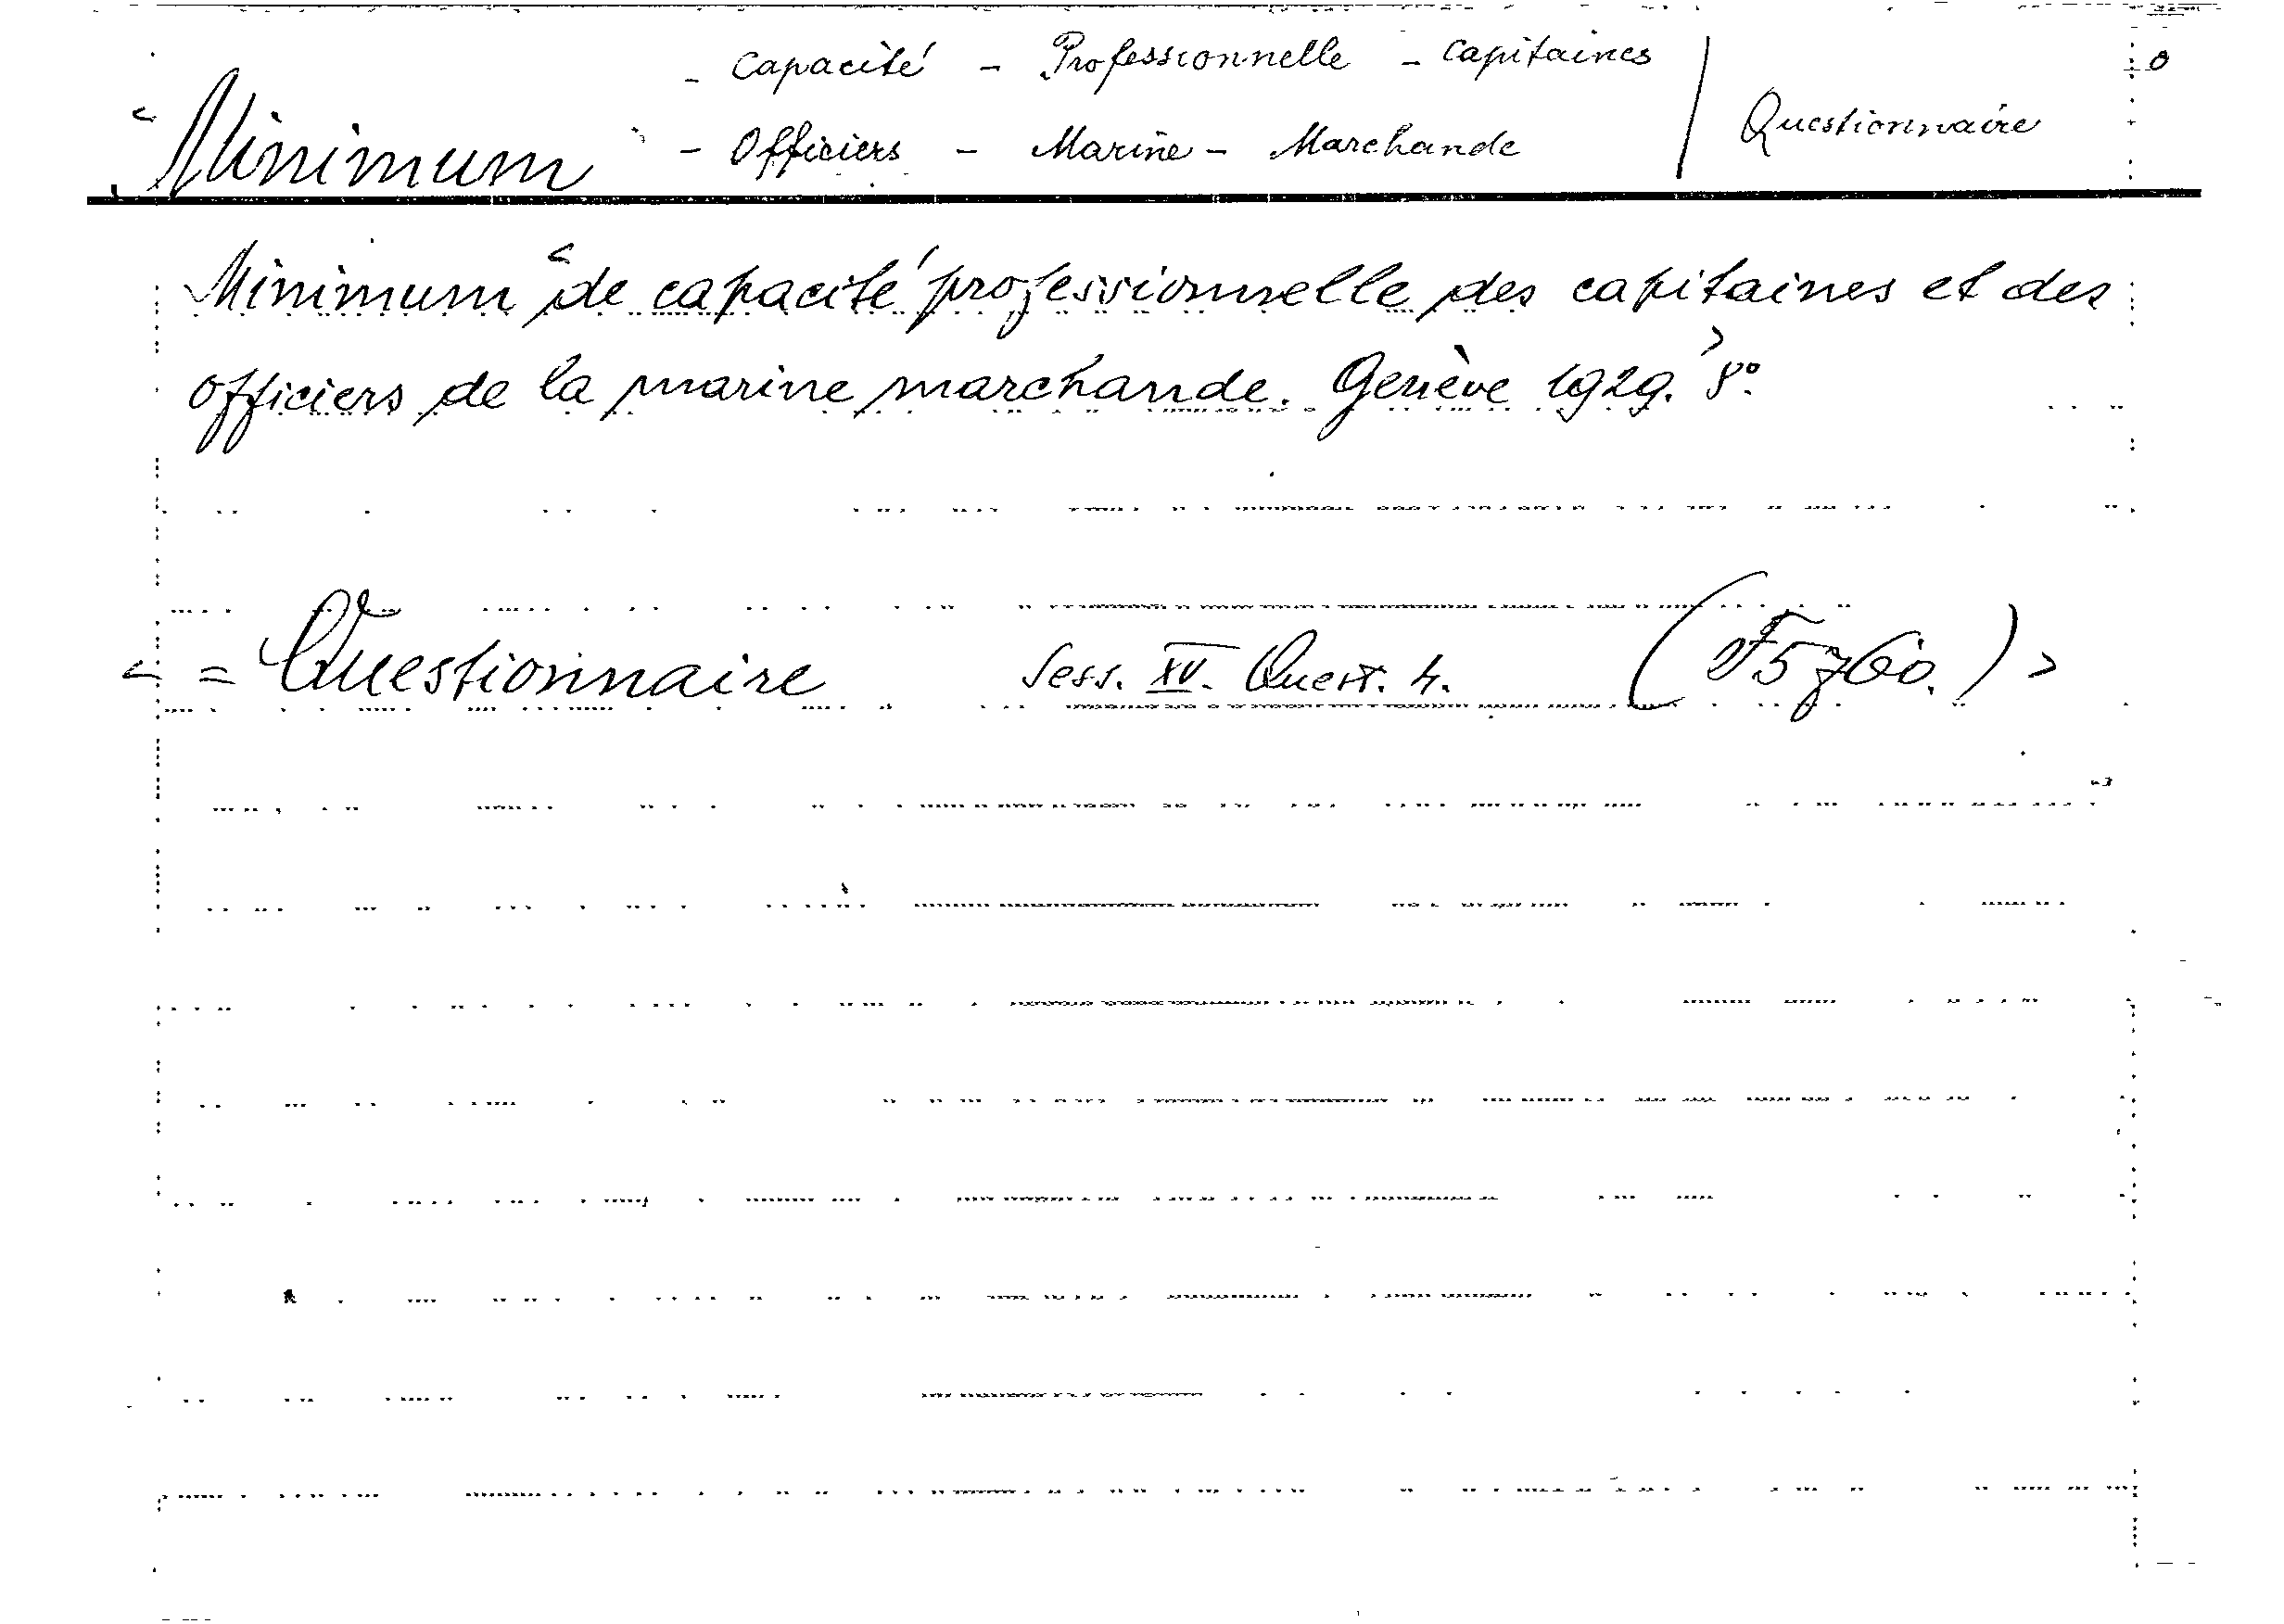 - Capacité - Professionnelle - Capitaines
Minimum - Officiers - Marine - Marchande | Questionnaire
Minimum de capacité professionnelle des capitaines et des
officiers de la marine marchande. Genève 1929. 8°.
= Questionnaire Sess. XV. Quest. 4. (F5760.)